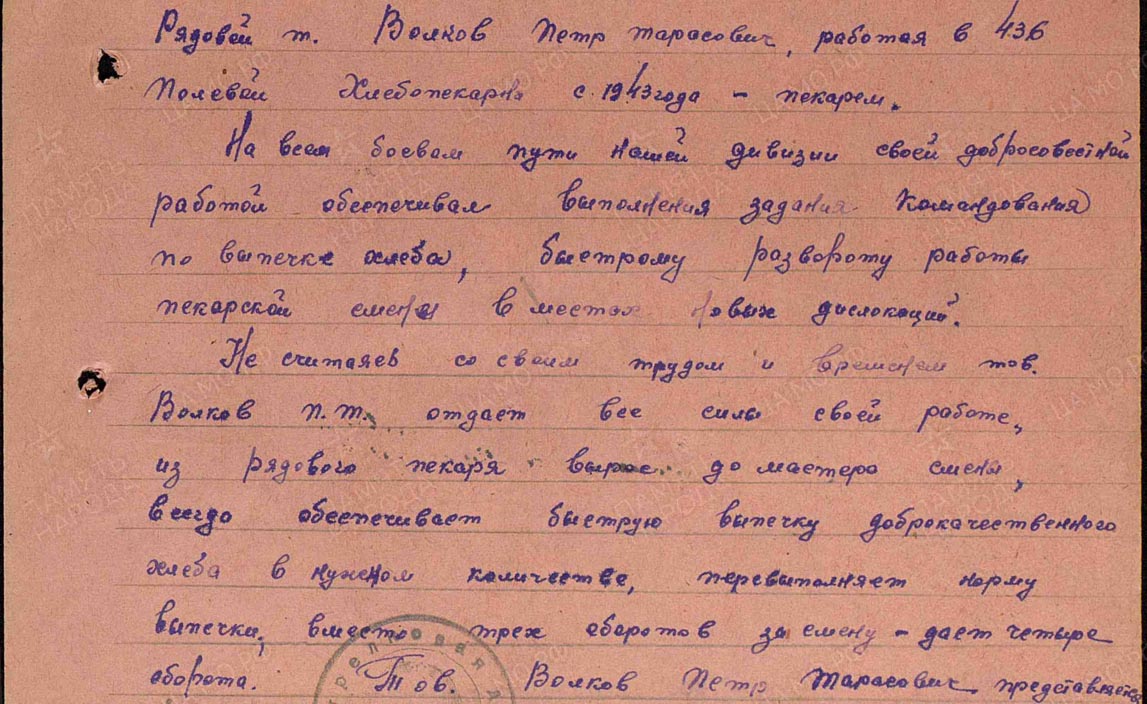 Рядовой т. Волков Петр Тарасович, работая в 436
Полевой Хлебопекарне с 1943 года – пекарем.
На всем боевам пути нашей дивизии своей добросовестной
работой обеспечивал выполнения задания Командования
по выпечке хлеба, быстрому развороту работы
пекарской смены в местах новых дислокаций.
Не считаяев со своим трудом и временем тов.
Волков П.Т. отдает все силы своей работе,
из рядового пекаря вырос до мастера смены,
всегдо обеспечивает быструю выпечку доброкачественного
хлеба в нужном количестве, перевыполняет норму
выпечки, вместо трех оборотов за смену – дает четыре
оборота. Тов. Волков Петр Тарасович представляется